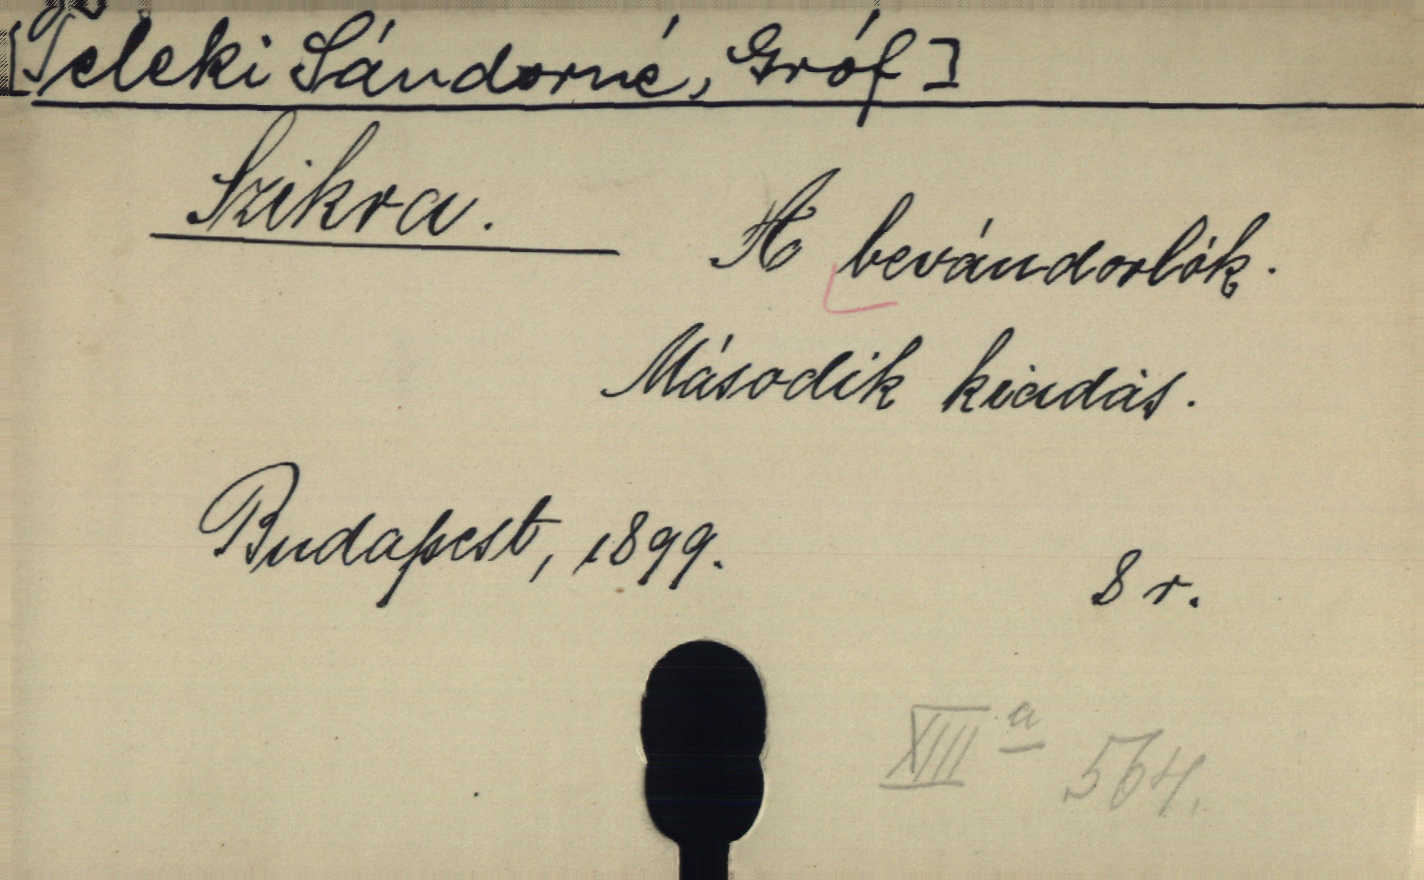 [Teleki Sándorné, Gróf]
Szikra.
A bevándorlók.
Második kiadás.
Budapest, 1899.
8 r.
XIII a 564.